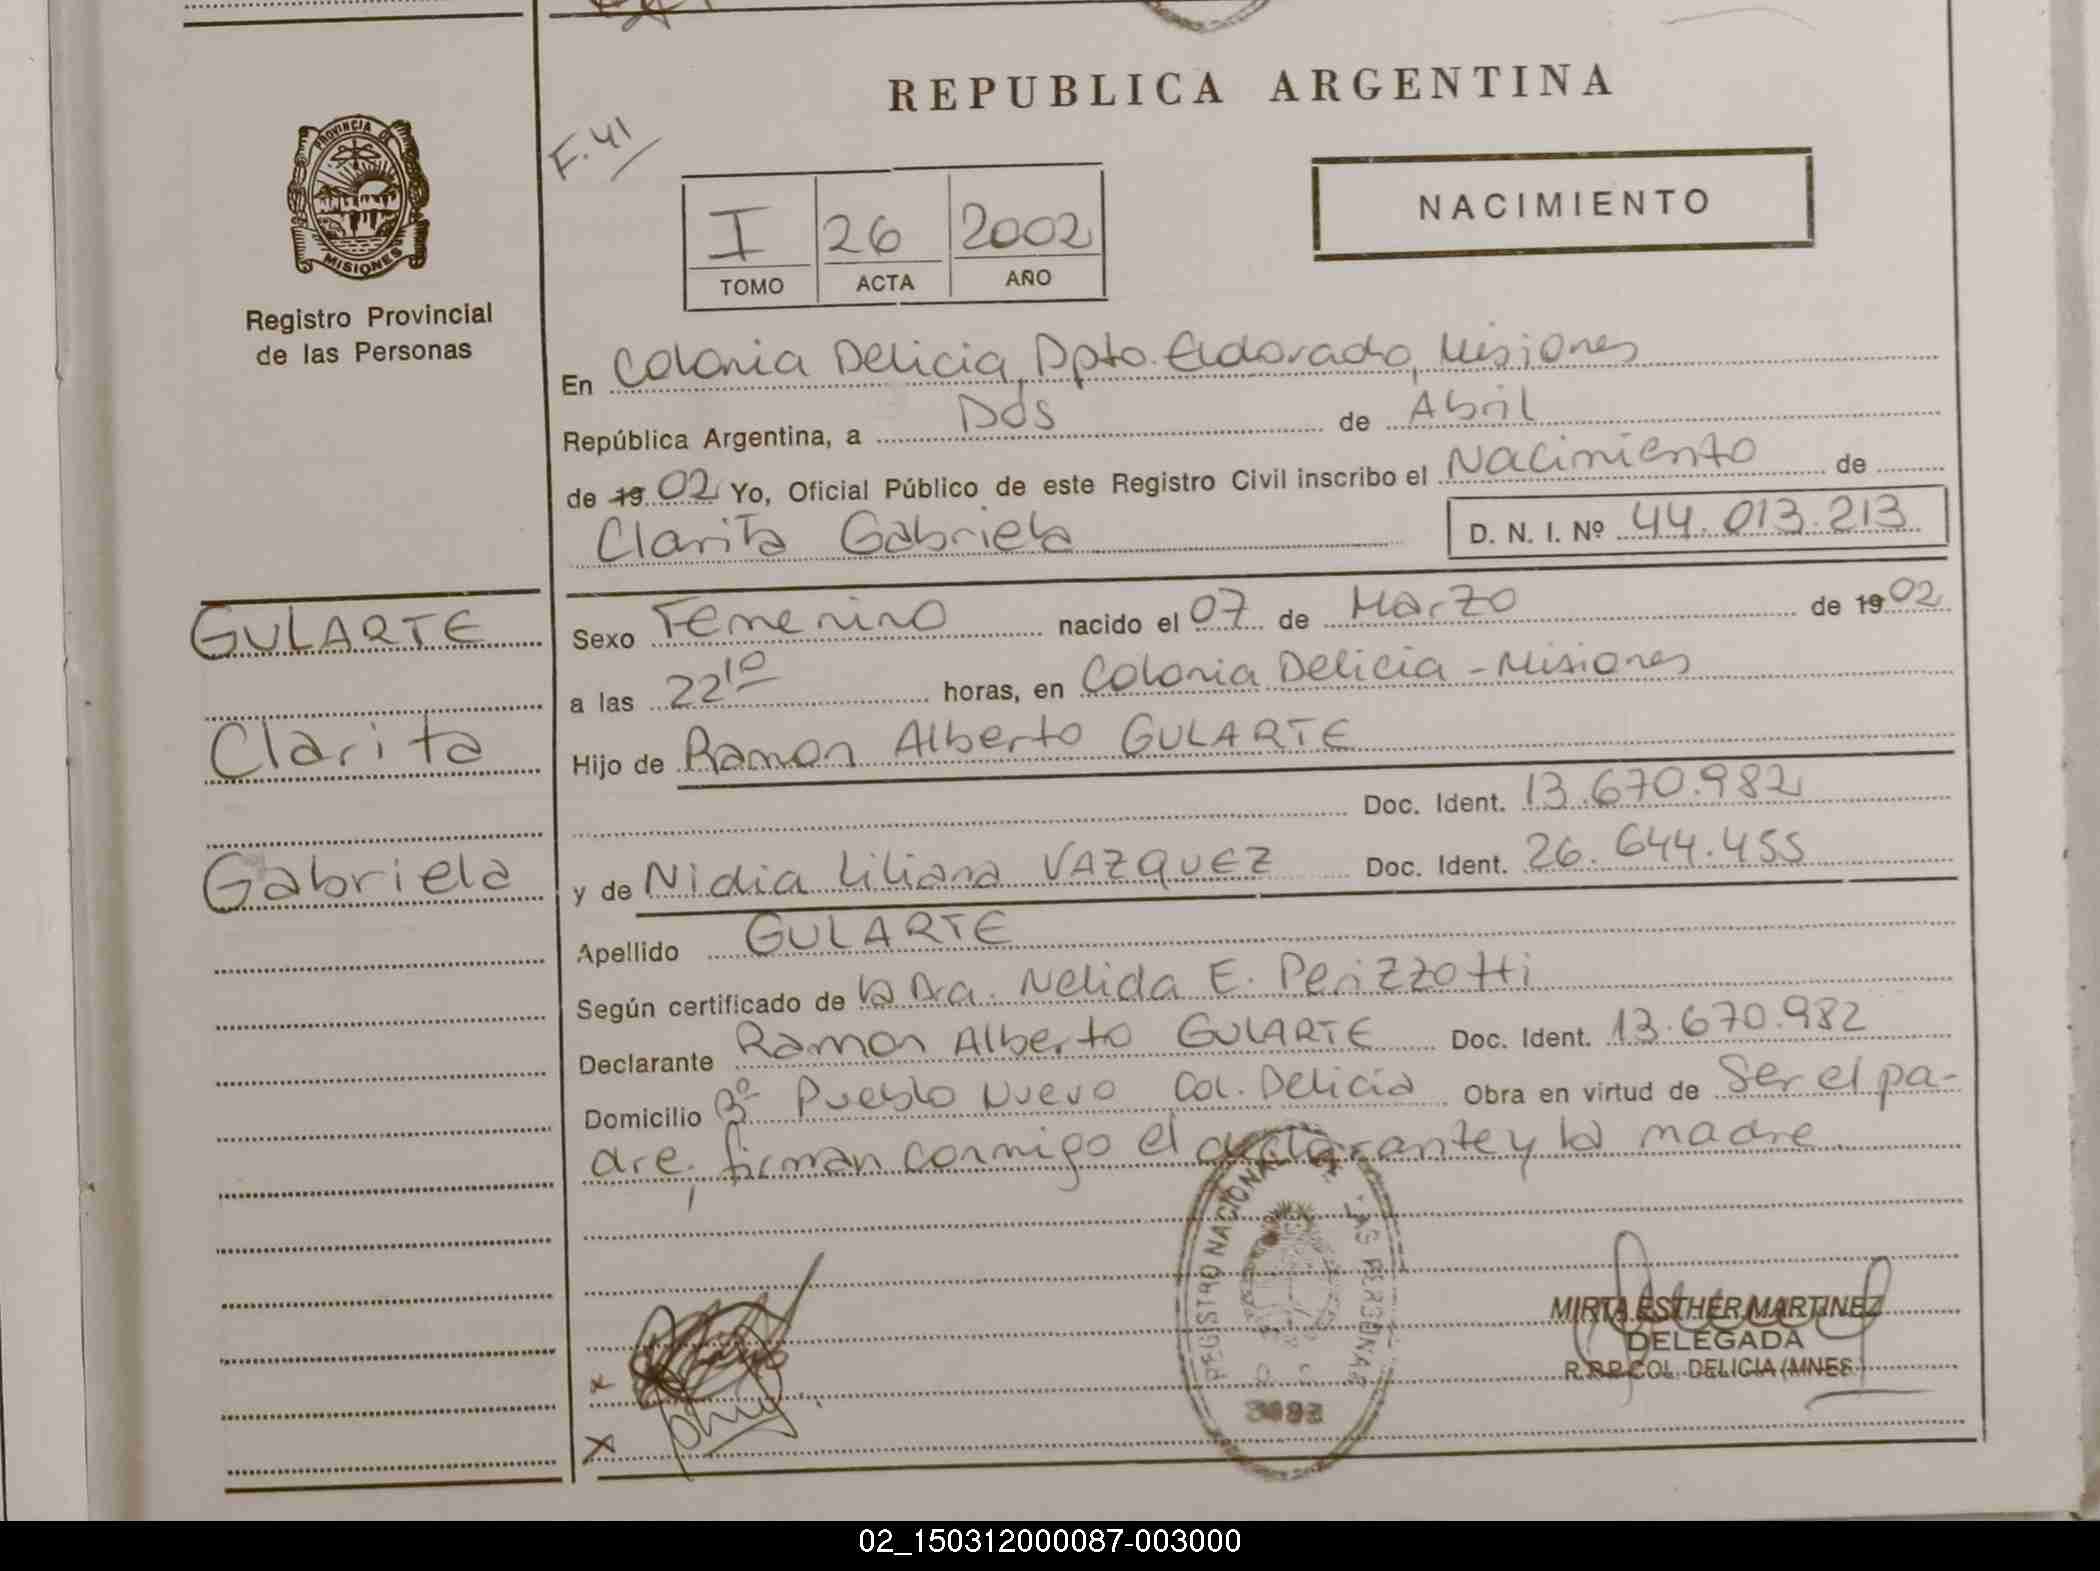 REPUBLICA ARGENTINA
PROVINCIA DE
MISIONES
Registro Provincial
de las Personas
F.41
I 26 2002
TOMO ACTA AÑO
NACIMIENTO
En Colonia Delicia, Dpto. Eldorado, Misiones
República Argentina, a Dos de Abril
de 19 02 Yo, Oficial Público de este Registro Civil inscribo el Nacimiento de
Clarita Gabriela D. N. I. Nº 44.013.213
GULARTE
Clarita
Gabriela
Sexo Femenino nacido el 07 de Marzo de 19 02
a las 22 10 horas, en Colonia Delicia - Misiones
Hijo de Ramon Alberto GULARTE
Doc. Ident. 13.670.982
y de Nidia Liliana VAZQUEZ Doc. Ident. 26.644.455
Apellido GULARTE
Según certificado de la Dra. Nelida E. Perizzotti
Declarante Ramon Alberto GULARTE Doc. Ident. 13.670.982
Domicilio Bº Pueblo Nuevo Col. Delicia Obra en virtud de Ser el pa-
dre, firman conmigo el declarante y la madre
REGISTRO NACIONAL DE LAS PERSONAS
MIRTA ESTHER MARTINEZ
DELEGADA
R.R.P. COL. DELICIA (MNES.)
x
x
02_150312000087-003000